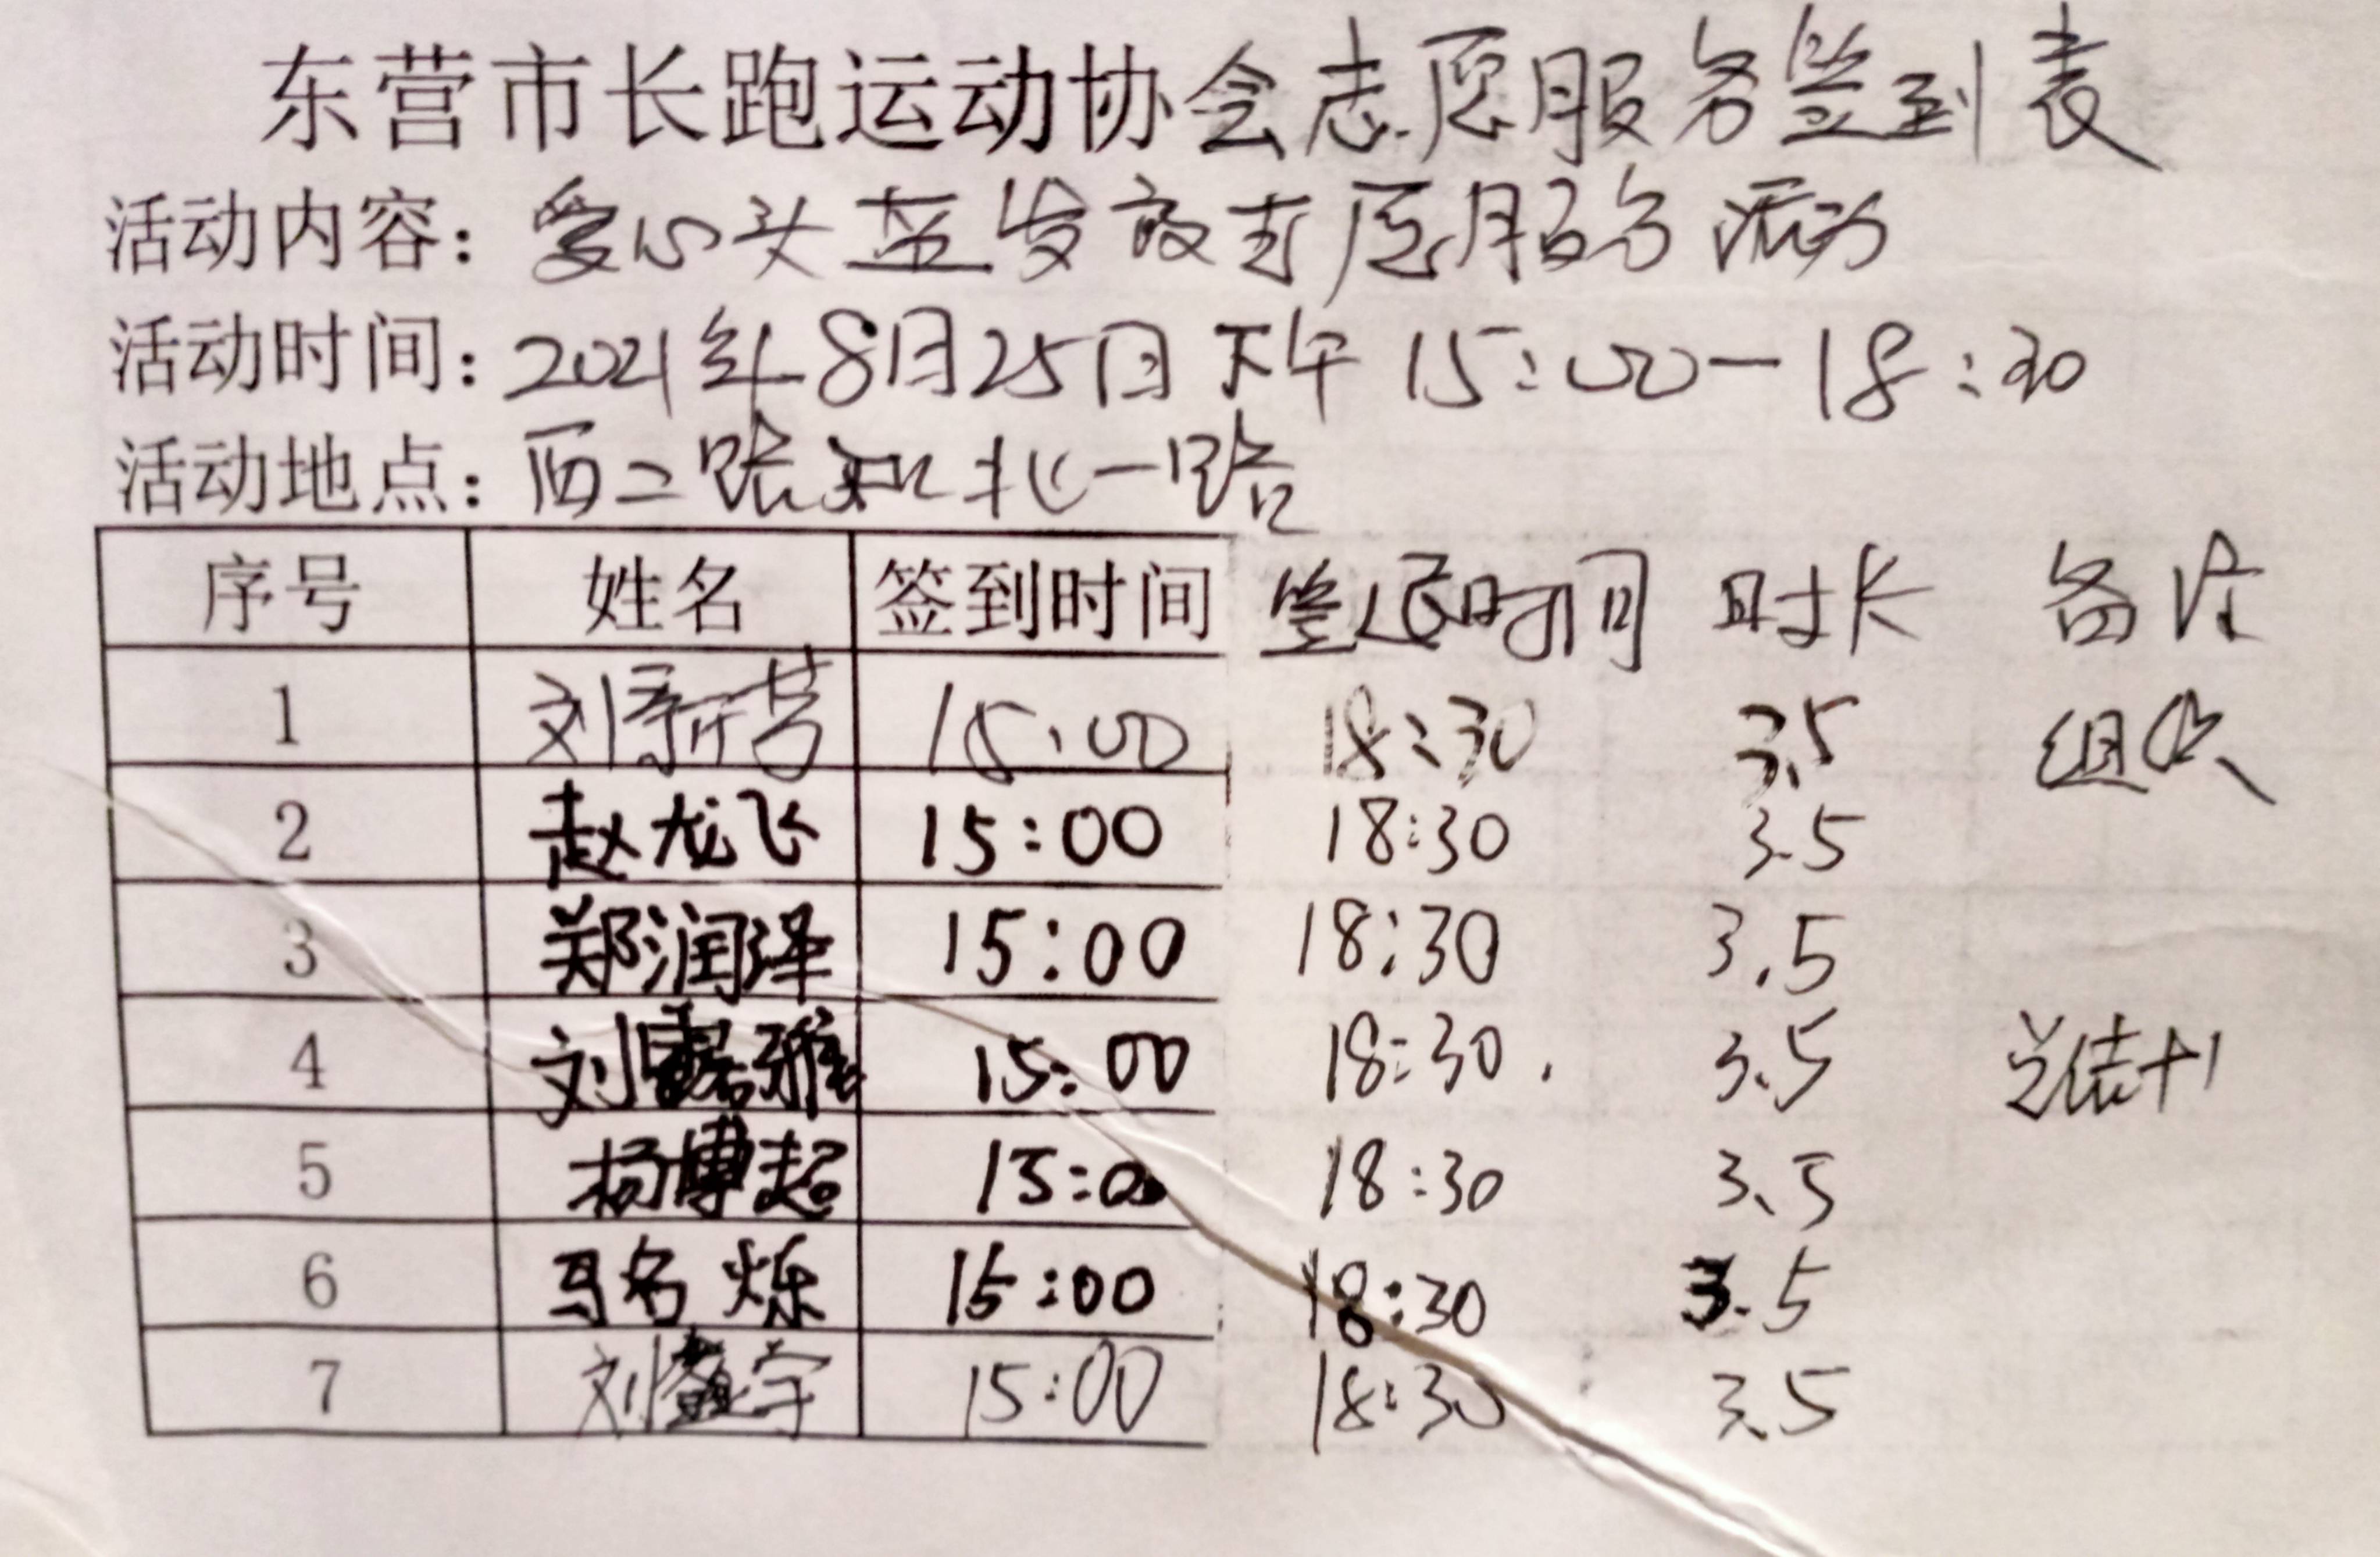 东营市长跑运动协会志愿服务签到表
活动内容：爱心头盔发放志愿服务活动
活动时间：2021年8月25日下午15:00-18:30
活动地点：西二路和北一路
序号 姓名 签到时间 签退时间 时长 备注
1 刘新芳 15:00 18:30 3.5 组织
2 赵龙飞 15:00 18:30 3.5
3 郑润泽 15:00 18:30 3.5
4 刘雅 15:00 18:30. 3.5 总结+1
5 杨博超 15:00 18:30 3.5
6 马名烁 15:00 18:30 3.5
7 刘宇 15:00 18:30 3.5